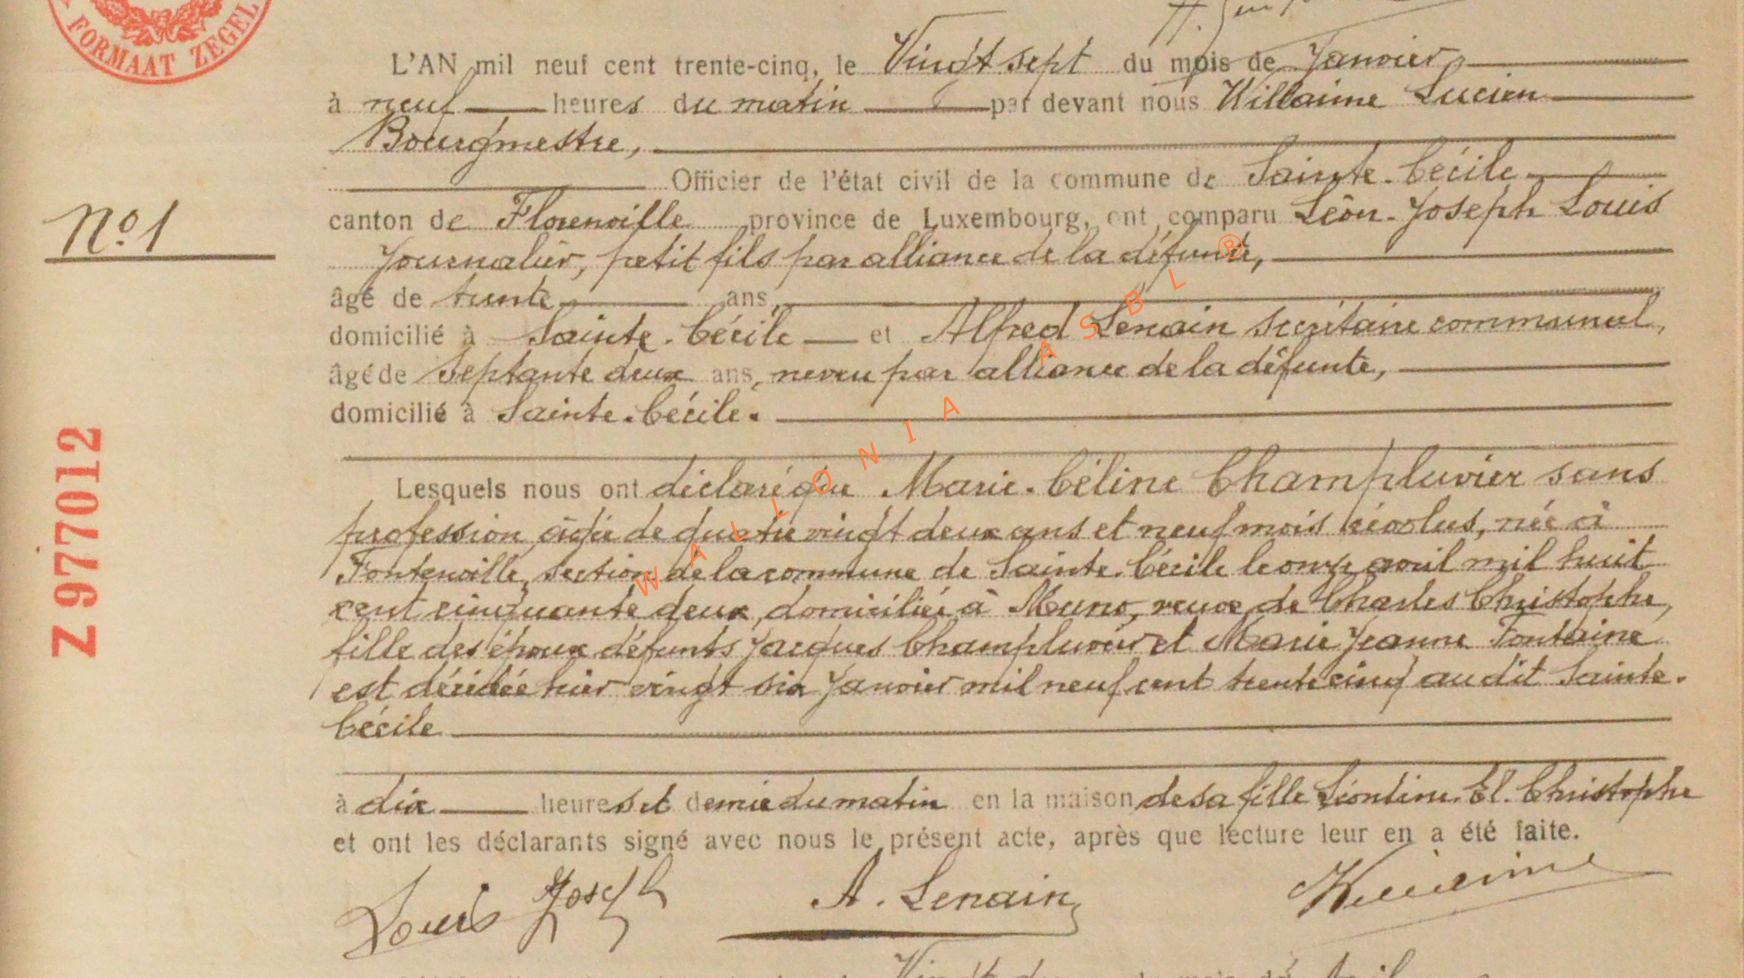 FORMAAT ZEGEL
L'AN mil neuf cent trente-cinq, le Vingt sept du mois de Janvier
à neuf heures du matin par devant nous Willaime Lucien
Bourgmestre,
Officier de l'état civil de la commune de Sainte-Cécile
N° 1
canton de Florenville province de Luxembourg, ont comparu Léon-Joseph Louis
Journalier, petit fils par alliance de la défunte,
âgé de trente ans,
domicilié à Sainte-Cécile et Alfred Lenain secrétaire communal,
âgé de septante deux ans, neveu par alliance de la défunte,
domicilié à Sainte-Cécile.
Lesquels nous ont déclaré que Marie-Céline Champluvier sans
profession, âgée de quatre vingt deux ans et neuf mois révolus, née à
Fontenoille, section de la commune de Sainte-Cécile le onze avril mil huit
cent cinquante deux, domiciliée à Muno, veuve de Charles Christophe,
fille des époux défunts Jacques Champluvier et Marie Jeanne Fontaine
est décédée hier vingt six Janvier mil neuf cent trente cinq audit Sainte-
Cécile
à dix heures et demie du matin en la maison de sa fille Léontine El. Christophe
et ont les déclarants signé avec nous le présent acte, après que lecture leur en a été faite.
Louis Joseph A. Lenain Willaime
Z 977012
WALLONIA ASBL ®